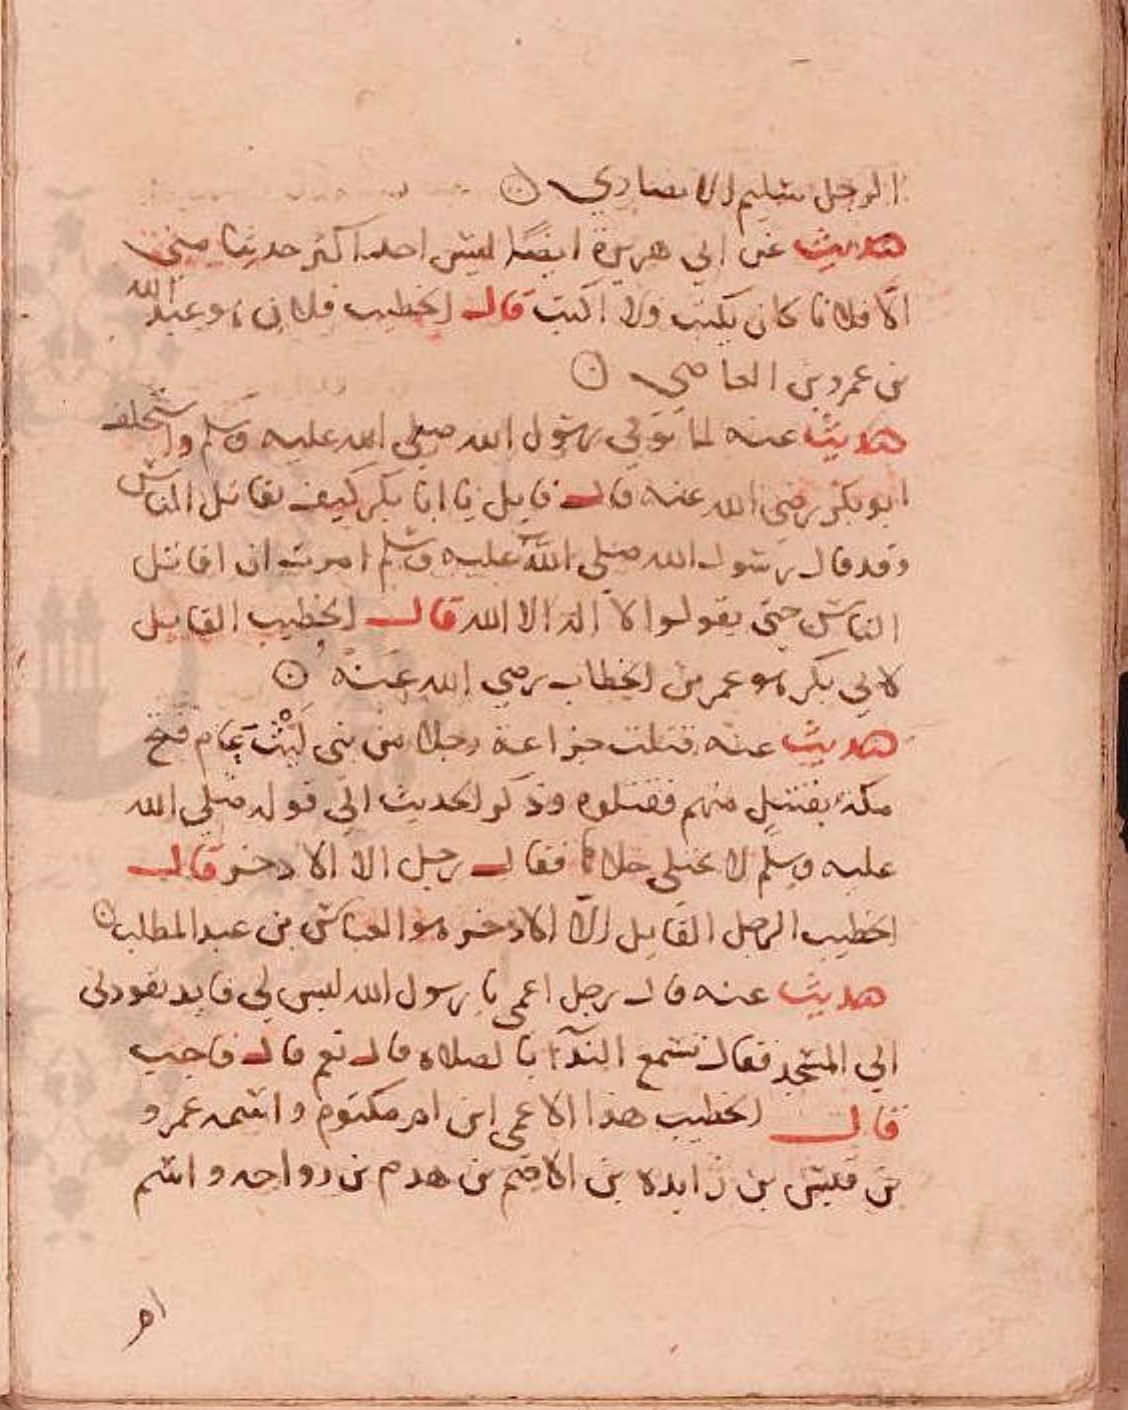 الرجل سليم الانصاري
حديث عن ابي هريرة ايضا ليس احد اكثر حديثا مني
الا فلانا كان يكتب ولا اكتب قال الخطيب فلان هو عبد الله
بن عمرو بن العاصي
حديث عنه لما توفي رسول الله صلى الله عليه وسلم واستخلف
ابو بكر رضي الله عنه قال قايل يا ابا بكر كيف نقاتل الناس
وقد قال رسول الله صلى الله عليه وسلم امرت ان اقاتل
الناس حتى يقولوا لا اله الا الله قال الخطيب القايل
لابي بكر هو عمر بن الخطاب رضي الله عنه
حديث عنه قتلت خزاعة رجلا من بني ليث عام فتح
مكة بقتيل منهم فقتلوه وذكر الحديث الي قوله صلى الله
عليه وسلم لا يختلى خلاها فقال رجل الا الاذخر قال
الخطيب الرجل القايل الا الاذخر هو العباس بن عبد المطلب
حديث عنه قال رجل اعمى يا رسول الله ليس لي قايد يقودني
الي المسجد فقال تسمع الندآء بالصلاه قال نعم قال فاجب
قال الخطيب هذا الاعمى ابن ام مكتوم واسمه عمرو
بن قيس بن زايده بن الاصم بن هدم بن رواحه واسم
ام